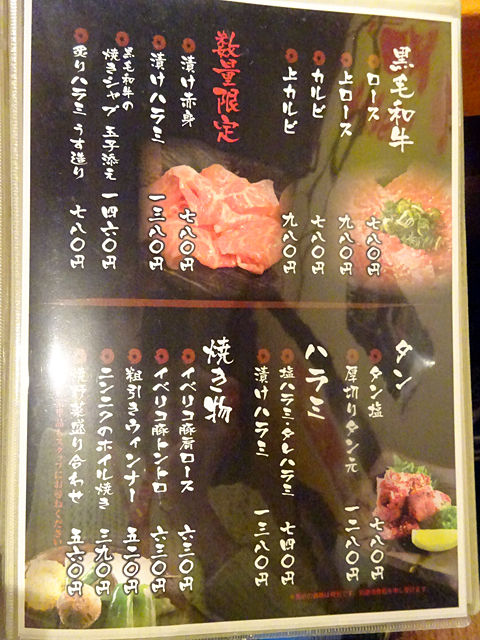 黒毛和牛
ロース 七八〇円
上ロース 九八〇円
カルビ 七八〇円
上カルビ 九八〇円
数量限定
漬け赤身 七八〇円
漬けハラミ 一三八〇円
黒毛和牛の
焼きシャブ 玉子添え 一四六〇円
炙りハラミ うす造り 七八〇円
タン
タン塩 七八〇円
厚切りタン元 一二八〇円
ハラミ
塩ハラミ・タレハラミ 七四〇円
漬けハラミ 一三八〇円
焼き物
イベリコ豚肩ロース 六三〇円
イベリコ豚トントロ 六三〇円
粗引きウィンナー 五二〇円
ニンニクのホイル焼き 三九〇円
焼野菜盛り合わせ 五六〇円
スタッフにお尋ねください